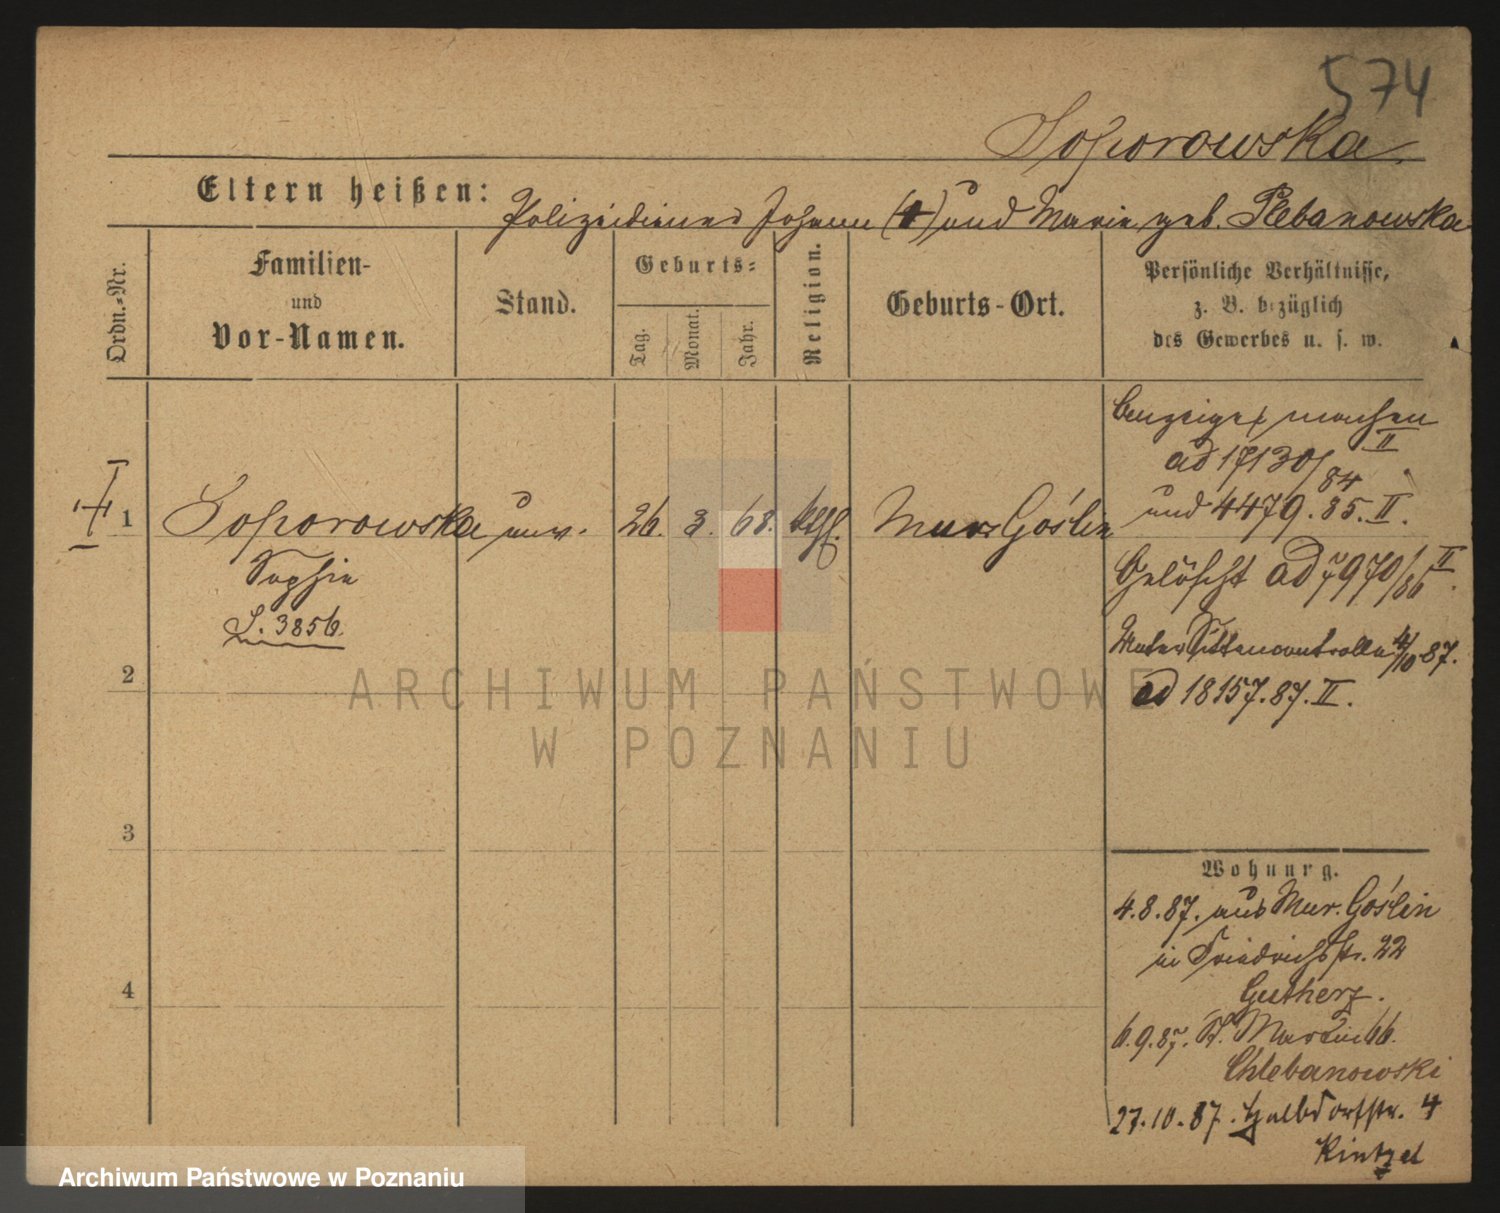 574
Soporowska.
Eltern heißen: Polizeidiener Johann (†) und Marie geb. Plebanowska
Ordn.-Nr.
Familien-
und
Vor-Namen.
Stand.
Geburts-
Tag.
Monat.
Jahr.
Religion.
Geburts-Ort.
Persönliche Verhältnisse,
z. B. bezüglich
des Gewerbes u. s. w.
Anzeige machen
ad 17130/84 II
und 4479.85.II.
1 Soporowska unv. 26. 3. 68. kthl. Mur. Goślin
Sophie
S. 3856.
Gelöscht ad 7970/86 II.
Unter Sittencontrolle 4/10 87.
ad 18157.87.II.
2
3
4
Wohnung.
4.8.87. aus Mur. Goślin
in Friedrichstr. 22
Gutherz.
6.9.87. St. Martin 66.
Chlebanowski
27.10.87. Halbdorfstr. 4
Kintzel
ARCHIWUM PAŃSTWOWE
W POZNANIU
Archiwum Państwowe w Poznaniu